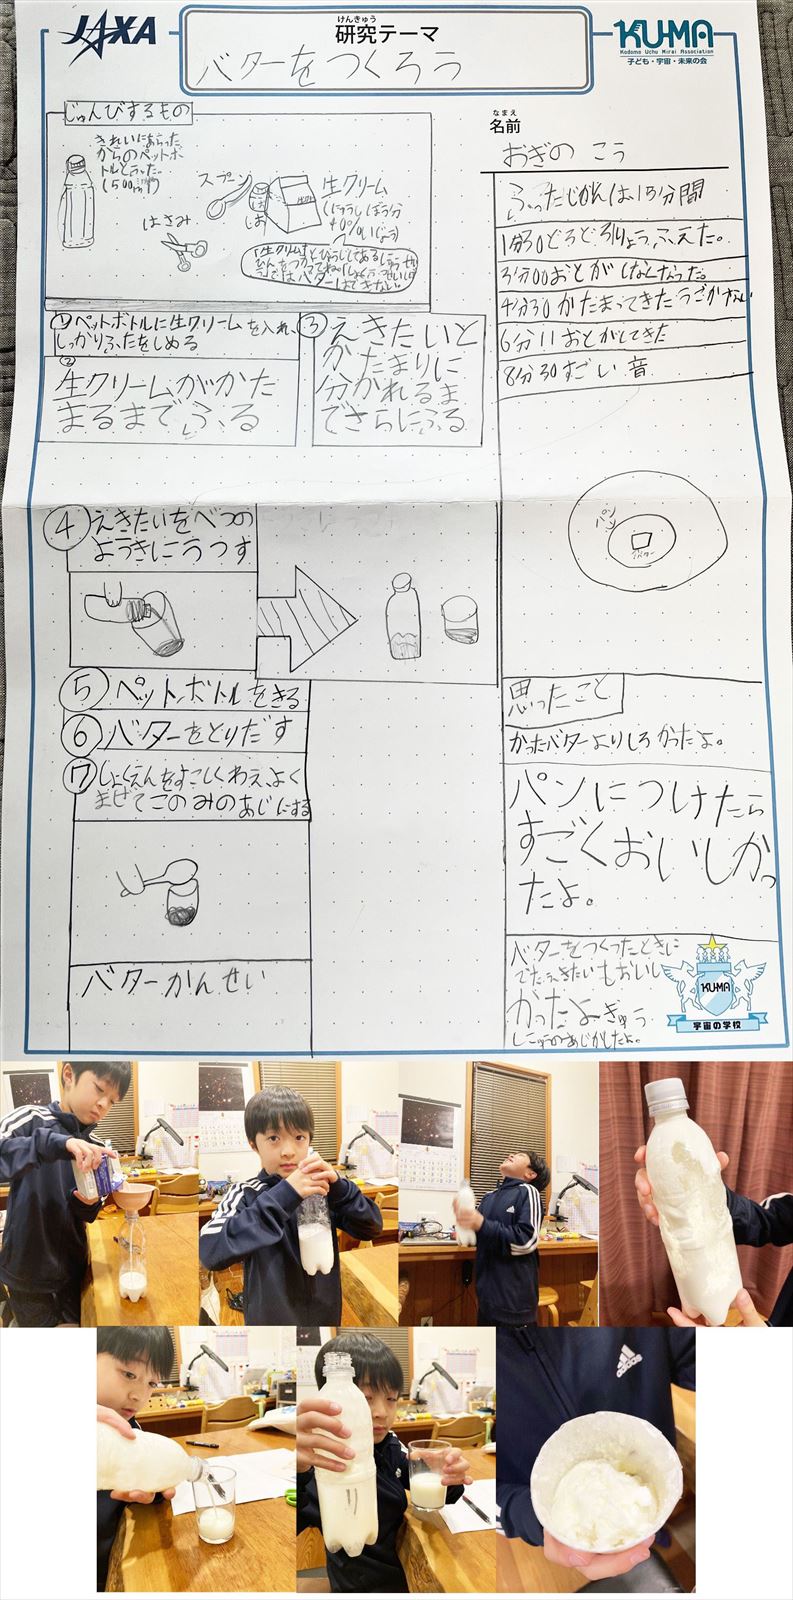 JAXA
けんきゅう
研究テーマ
バターをつくろう
KU-MA
Kodomo Uchu Mirai Association
子ども・宇宙・未来の会
なまえ
名前
おぎの こう
じゅんびするもの
きれいにあらった
からのペットボ
トル
(500
スプーン
しお
はさみ
生クリーム
(にゅうしぼう分
40%いじょう)
ではバターはできない。
①ペットボトルに生クリームを入れ、
しっかりふたをしめる
②
生クリームがかた
まるまでふる
③えきたいと
かたまりに
分かれるま
でさらにふる
④えきたいをべつの
ようきにうつす
⑤ペットボトルをきる
⑥バターをとりだす
⑦しょくえんをすこしくわえ、よく
まぜてこのみのあじにする
バターかんせい
ふったじかんは15分間
1分30どろどろりょうふえた。
3分00おとがしなくなった。
4分30かたまってきたうごかない
6分11おとがしてきた
8分30すごい音
パン
バター
思ったこと
かったバターよりしろかったよ。
パンにつけたら
すごくおいしかっ
たよ。
バターをつくったときに
でたえきたいもおいし
かったよぎゅう
にゅうのあじがしたよ。
KU-MA
宇宙の学校
adidas